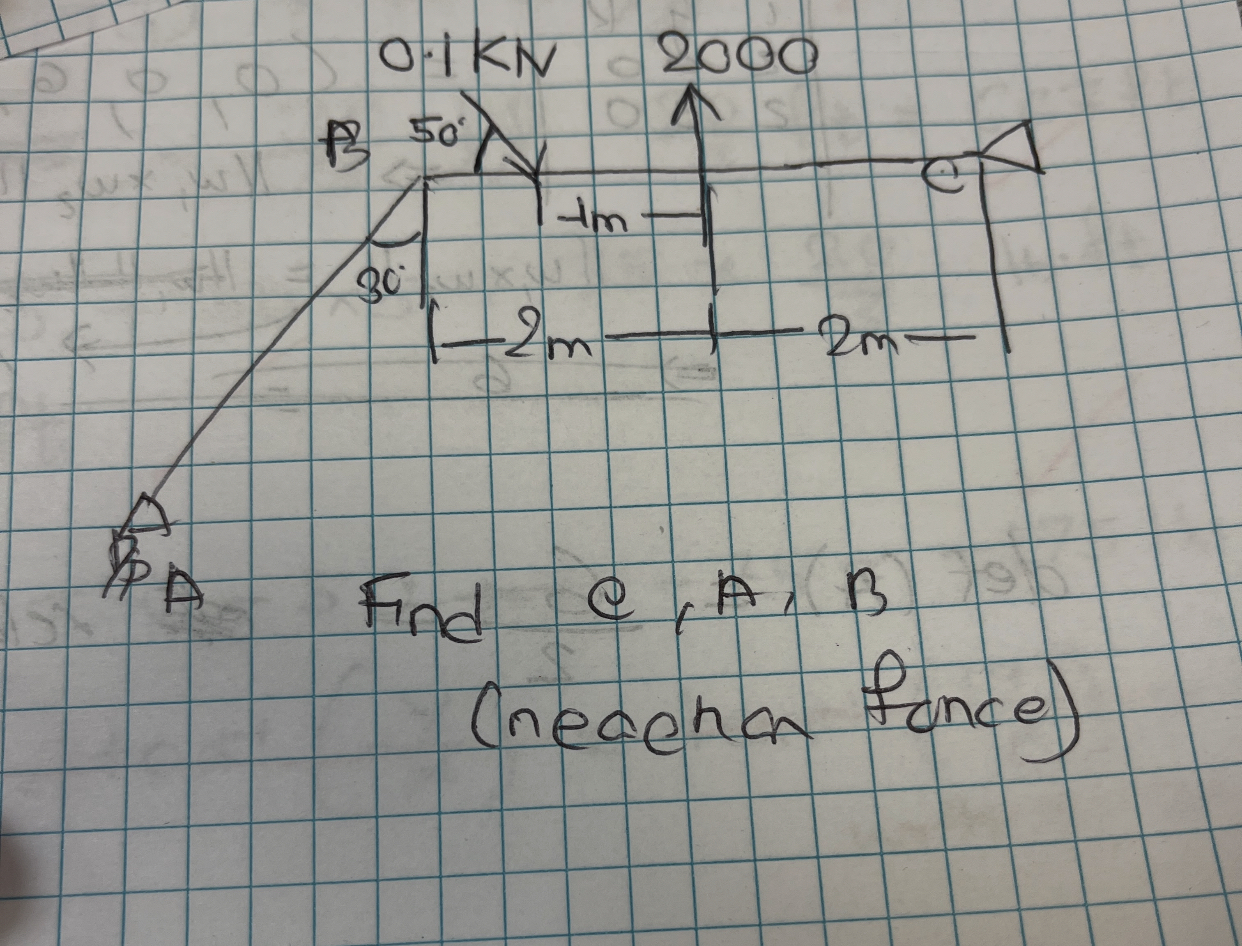 0.1KN 2000
B 50°
C
1m
30°
2m 2m
A
Find C, A, B
(reachon force)